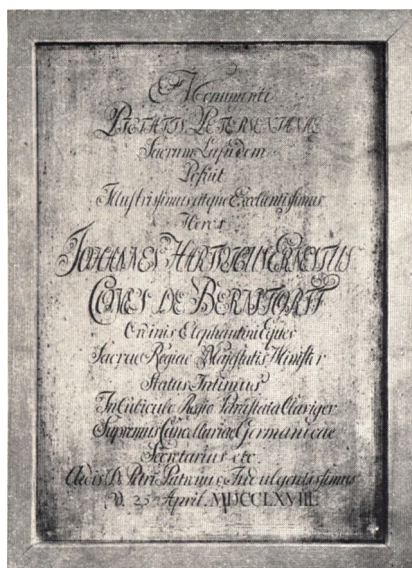 Monumenti
PIETATIS PETERSENIANÆ
Sacrum Lapidem
Posuit
Illustrissimus atque Excellentissimus
Heros
JOHANNES HARTVICUS ERNESTUS
COMES DE BERNSTORFF
Ordinis Elephantini Eques
Sacrae Regiae Majestatis Minister
Status Intimus
In Cubiculo Regio Claviger
Supremus Cancellariae Germanicae
Secretarius etc.
Aedis D. Petri Patronus Indulgentissimus
D. 25 April. MDCCLXVIII